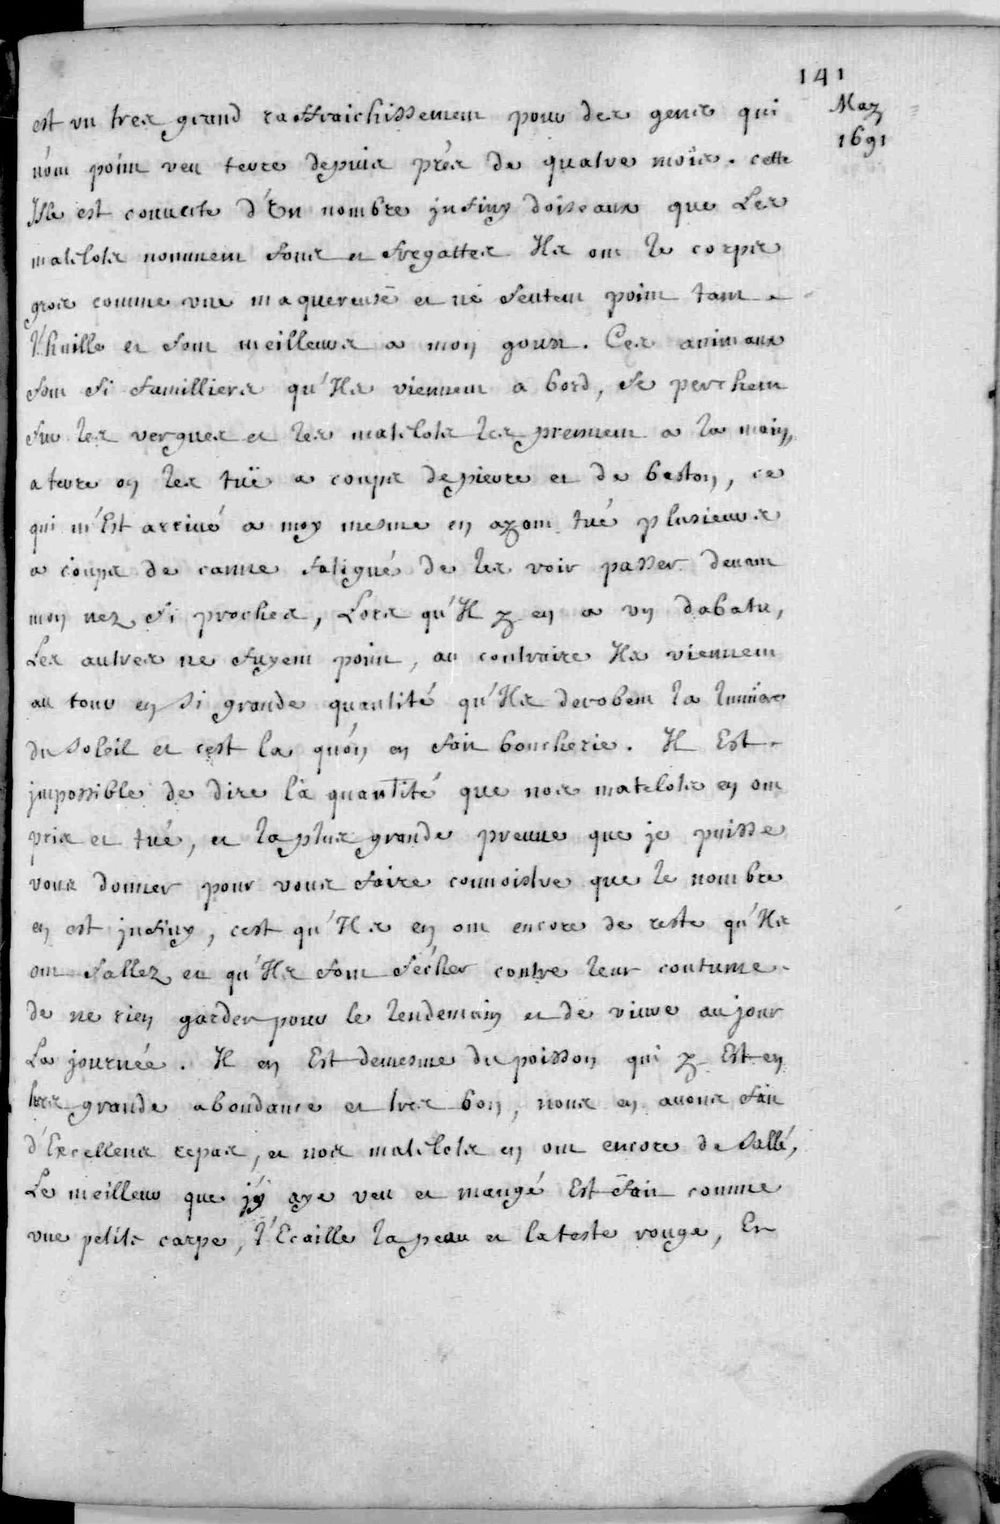 141
May
1691
est vn tres grand raffraichissement pour des gens qui
n'ont point veu terre depuis prés de quatre mois. cette
Isle est couuerte d'Vn nombre jnfiny doiseaux que Les
matelots nomment fous et fregattes Ils ont le corps
gros comme vne maquereuse et ne sentent point tant
l'huille et sont meilleurs a mon goust. Ces animaux
sont si familliers qu'Ils viennent a bord, se perchent
sur les vergues et les matelots les prennent a la main,
a terre on les tuë a coups de pierre et de baston, ce
qui m'Est arriué a moy mesme en ayant tué plusieurs
a coups de canne fatigué de les voir passer deuant
mon nez si proches, Lors qu'Il y en a vn dabatu,
Les autres ne fuyent point, au contraire Ils viennent
au tour en si grande quantité qu'Ils derobent la lumiere
du soleil et cest la qu'on en fait boucherie. Il Est
jmpossible de dire la quantité que nos matelots en ont
pris et tué, et la plus grande preuue que je puisse
vous donner pour vous faire connoistre que le nombre
en est jnfiny, cest qu'Ils en ont encore de reste qu'Ils
ont sallez et qu'Ils font sécher contre leur coutume
de ne rien garder pour le lendemain et de viure au jour
La journée. Il en Est de mesme du poisson qui y Est en
tres grande abondance et tres bon, nous en auons fait
d'Excellens repas, et nos matelots en ont encore de sallé,
Le meilleur que j'ÿ aye veu et mangé Est fait comme
vne petite carpe, l'Ecaille la peau et la teste rouge, Et